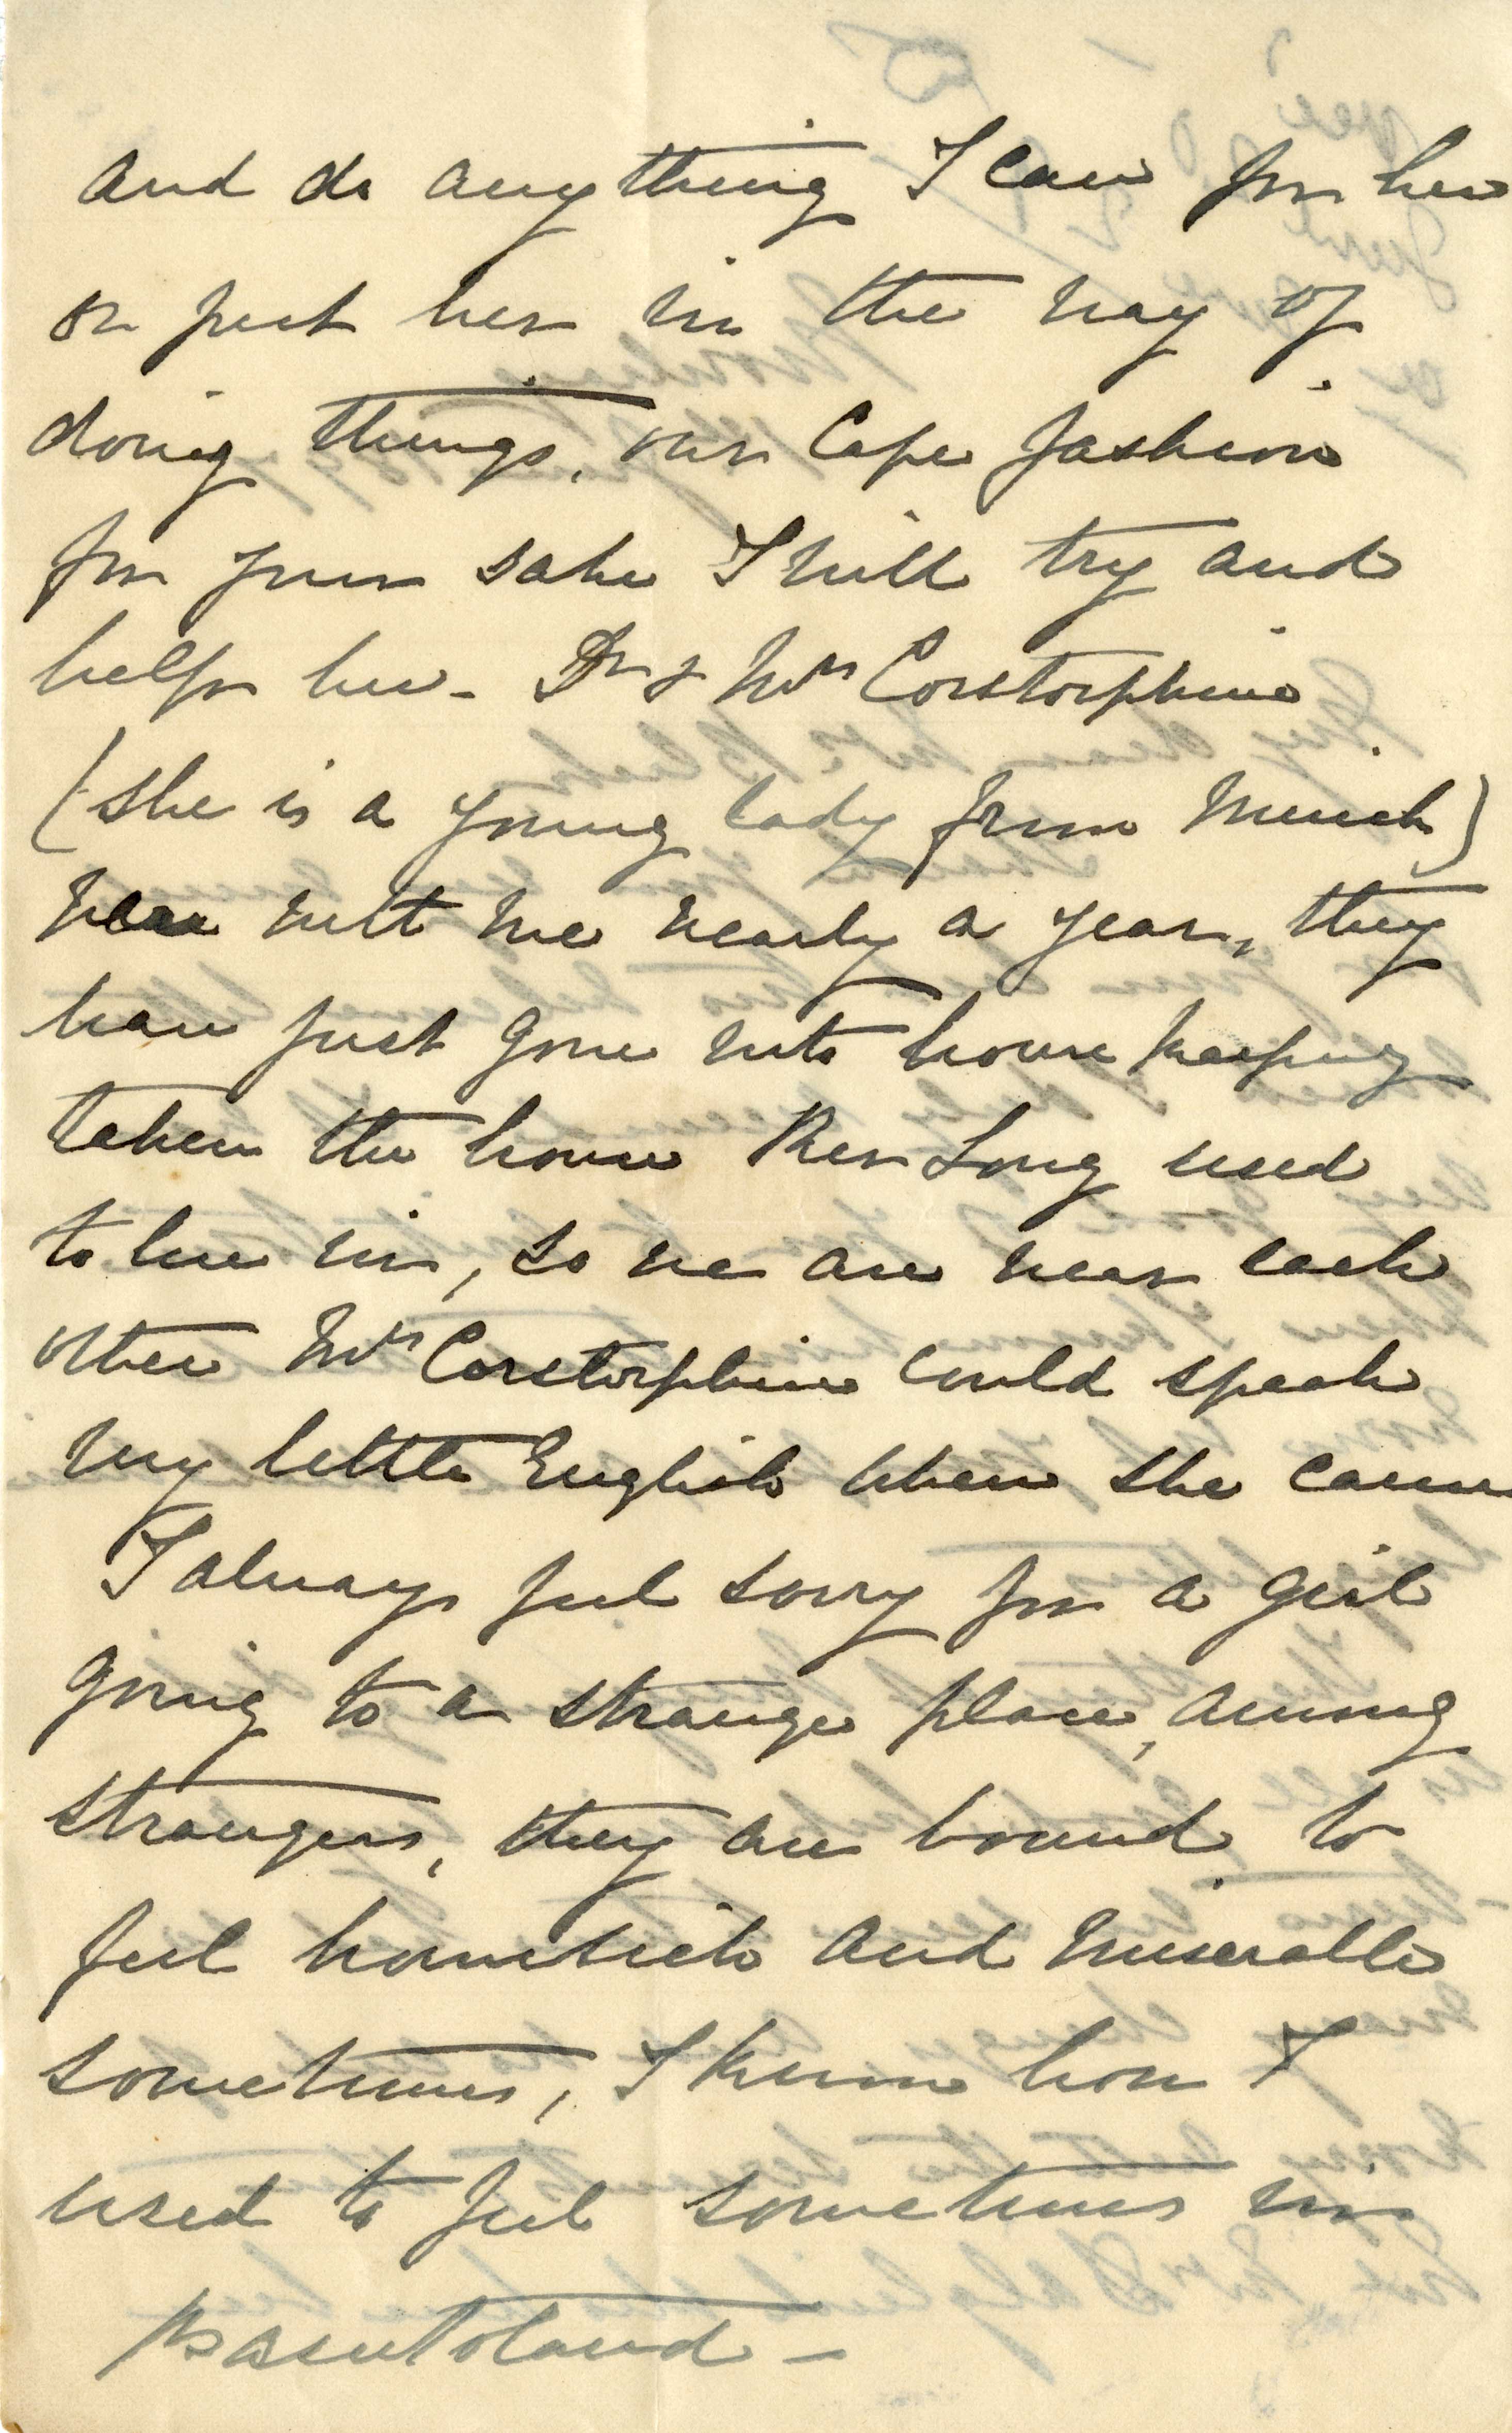 and do anything I can for her
or put her in the way of
doing things, our Cape fashion
for your sake I will try and
help her - Dr & Mrs Corstorphine
(she is a young lady from Munich)
were with me nearly a year, they
have just gone into house keeping
taken the house Rev Long used
to live in, so we are near each
other Mrs Corstorphine could speak
very little English when she came
I always feel sorry for a girl
going to a strange place, among
strangers, they are bound to
feel homesick and miserable
sometimes, I know how I
used to feel sometimes in
Basutoland -